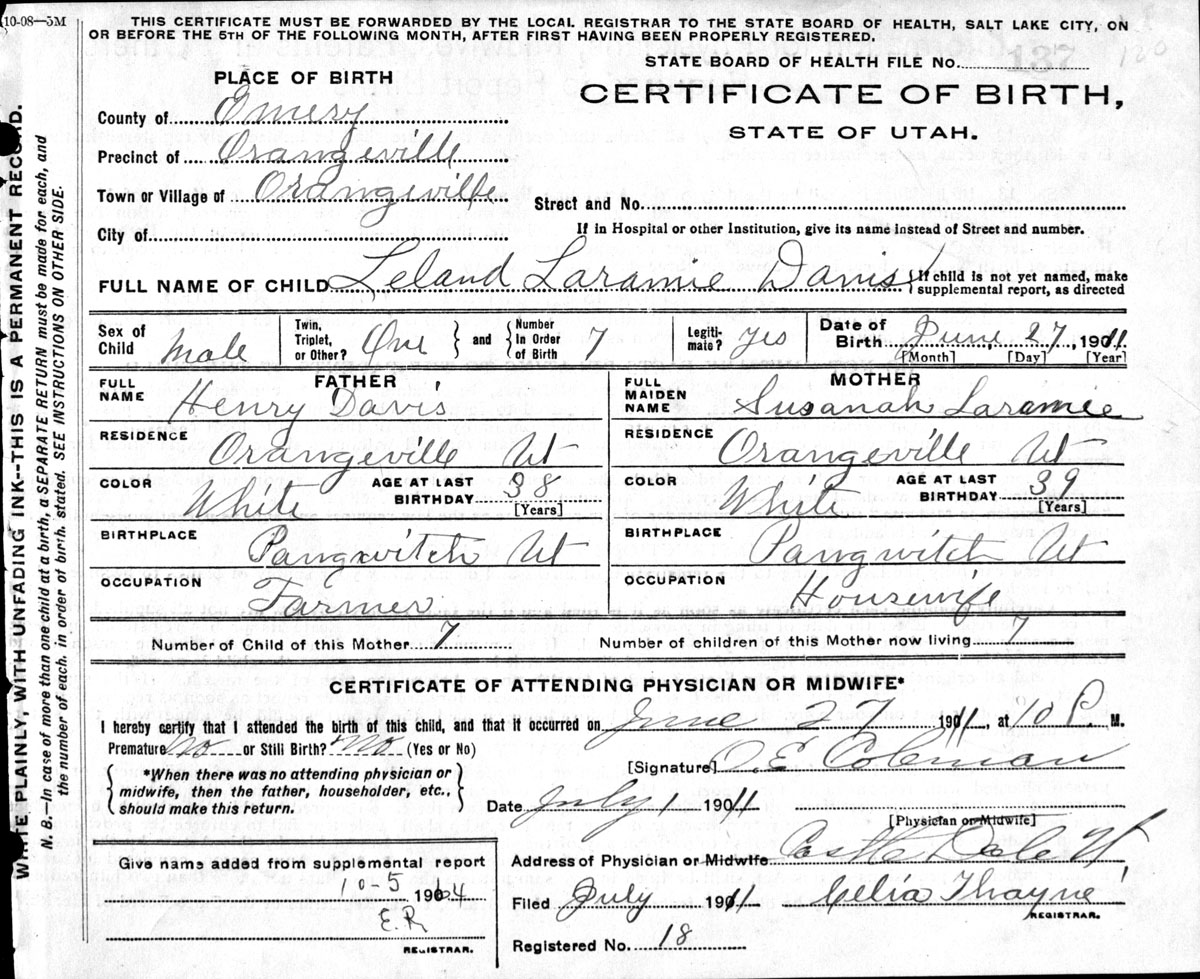 10-08—5M
THIS CERTIFICATE MUST BE FORWARDED BY THE LOCAL REGISTRAR TO THE STATE BOARD OF HEALTH, SALT LAKE CITY, ON
OR BEFORE THE 5TH OF THE FOLLOWING MONTH, AFTER FIRST HAVING BEEN PROPERLY REGISTERED.
STATE BOARD OF HEALTH FILE No. 137
120
PLACE OF BIRTH
CERTIFICATE OF BIRTH,
STATE OF UTAH.
County of Emery
Precinct of Orangeville
Town or Village of Orangeville
Street and No.
City of
If in Hospital or other Institution, give its name instead of Street and number.
FULL NAME OF CHILD Leland Laramie Davis { If child is not yet named, make
supplemental report, as directed
Sex of Child Male Twin, Triplet, or Other? One } and { Number in Order of Birth 7 Legiti-mate? Yes Date of Birth June 27, 1911
[Month] [Day] [Year]
FATHER MOTHER
FULL NAME Henry Davis FULL MAIDEN NAME Susanah Laramie
RESIDENCE Orangeville Ut RESIDENCE Orangeville Ut
COLOR White AGE AT LAST BIRTHDAY 38 [Years] COLOR White AGE AT LAST BIRTHDAY 39 [Years]
BIRTHPLACE Pangwitch Ut BIRTHPLACE Pangwitch Ut
OCCUPATION Farmer OCCUPATION Housewife
Number of Child of this Mother 7 Number of children of this Mother now living 7
CERTIFICATE OF ATTENDING PHYSICIAN OR MIDWIFE*
I hereby certify that I attended the birth of this child, and that it occurred on June 27 1911, at 10 P. M.
Premature No or Still Birth? No (Yes or No)
[Signature] O. E. Coleman
{ *When there was no attending physician or
midwife, then the father, householder, etc.,
should make this return. }
Date July 1 1911
[Physician or Midwife]
Address of Physician or Midwife Castle Dale Ut
Filed July 1911 Celia Thayne
REGISTRAR.
Registered No. 18
Give name added from supplemental report
10-5 1904
E.R
REGISTRAR.
WRITE PLAINLY, WITH UNFADING INK--THIS IS A PERMANENT RECORD.
N. B.—In case of more than one child at a birth, a SEPARATE RETURN must be made for each, and
the number of each, in order of birth, stated. SEE INSTRUCTIONS ON OTHER SIDE.